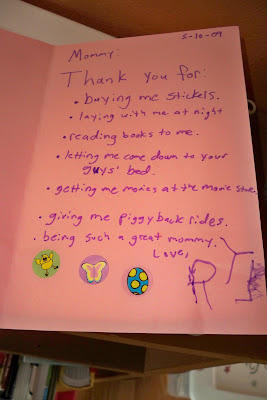 5-10-09
Mommy:
Thank you for:
• buying me stickels.
• laying with me at night
• reading books to me.
• letting me come down to your
guys' bed.
• getting me movies at the movie store.
• giving me piggy back rides.
• being such a great mommy.
Love,